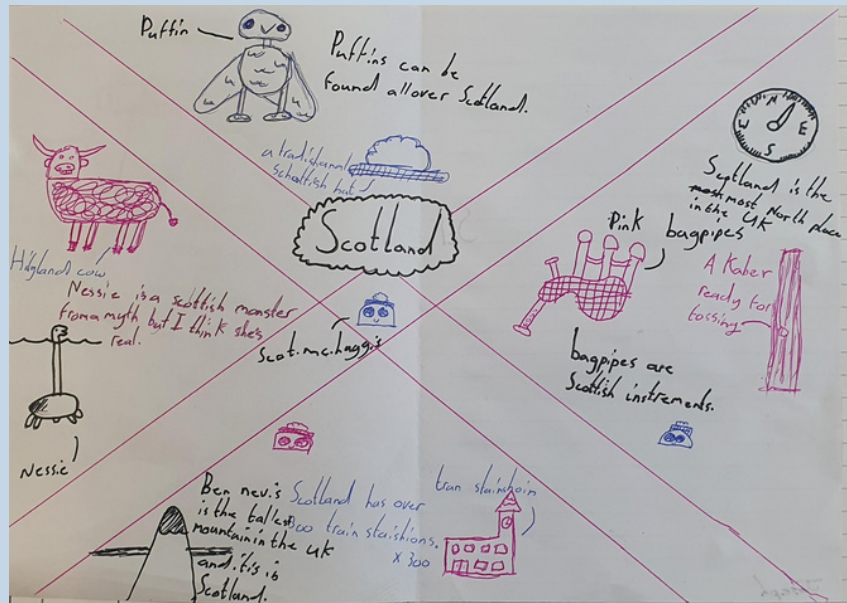 Puffin
Puffins can be
found all over Scotland.
a tradishanal
schottish hat
Scotland
N
E
S
E
Scotland is the
most most North place
in the UK
Pink bagpipes
A Kaber
ready for
tossing
bagpipes are
Scottish instrements.
Highland cow
Nessie is a scottish monster
from a myth but I think she's
real.
Nessie
Scot.mc.haggis
Ben nevis
is the tallest
mountain in the UK
and it is in
Scotland.
Scotland has over
300 train staishions.
x 300
tran stainshoin
Joseph